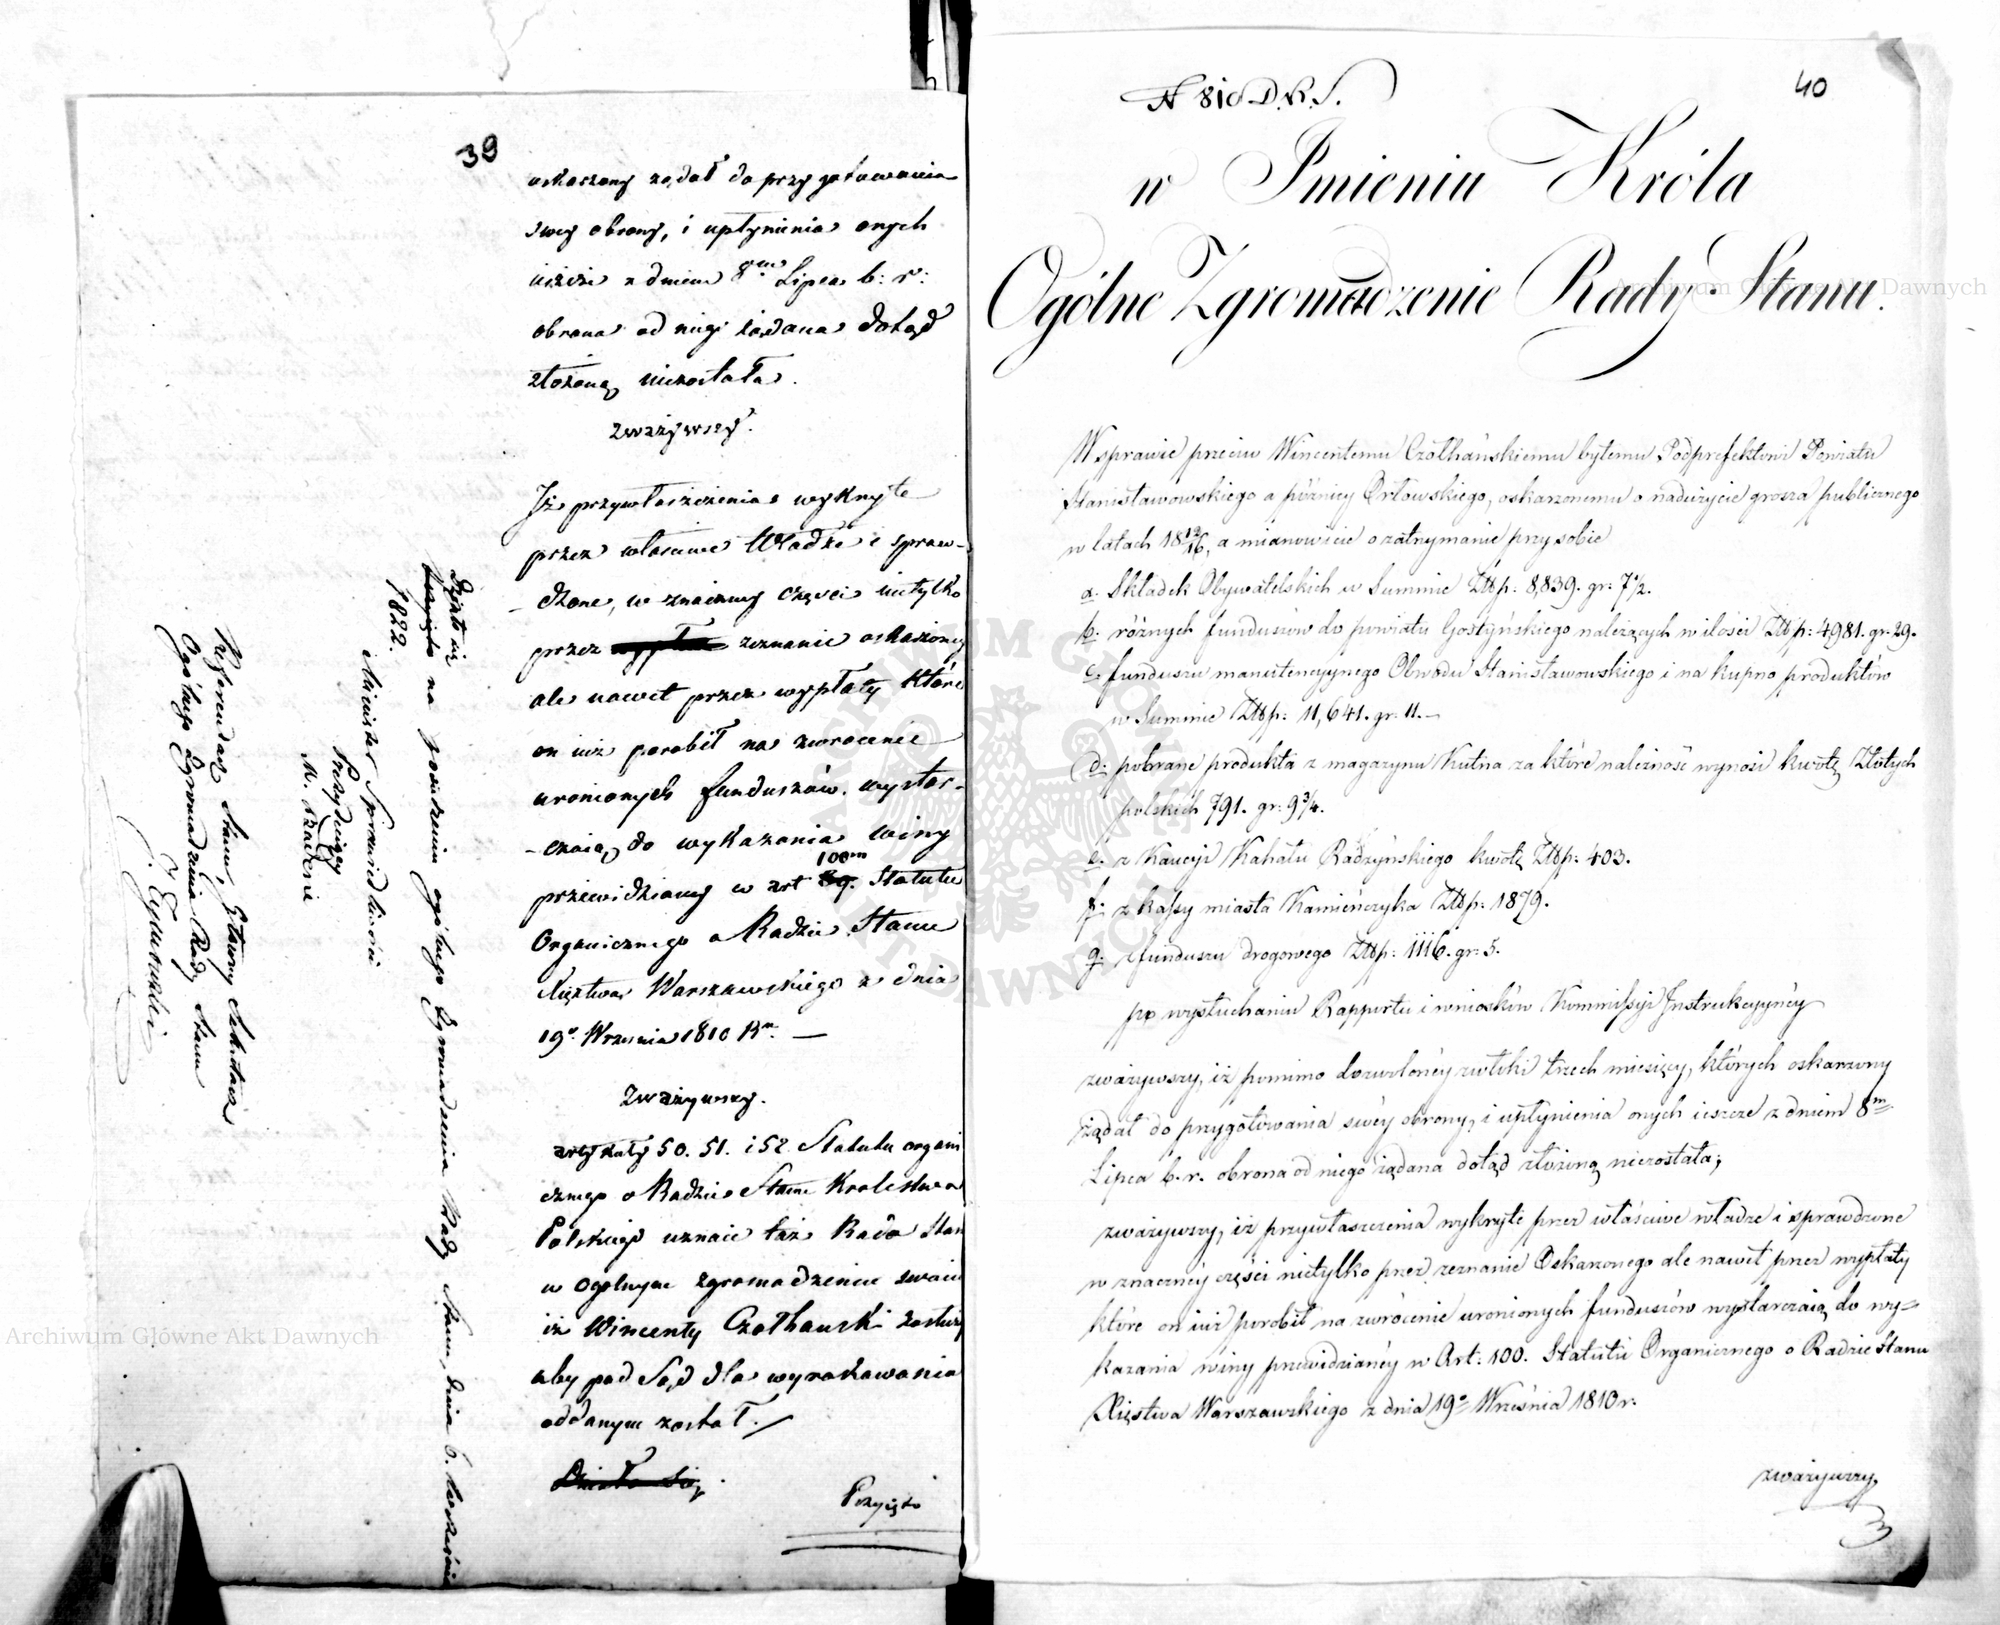 39
oskarzony żądał do przygotowania
swey obrony, i upłynienia onych
ieszcze z dniem 8m Lipca b: r:
obrona od niego żądana dotąd
złożoną niezostała.
zważywszy.
Iż przywłaszczenia wykryte
przez własciwe Władze i spraw-
-dzone, w znaczney części nietylko
przez zeznanie oskarzoney
ale nawet przez wypłaty które
on iuż porobił na zwrocenie
uronionych funduszów wystar-
-czaią do wykazania winy
100m
przewidzianey w art 89. Statutu
Organicznego o Radzie Stanu
Xięztwa Warszawskiego z dnia
19o Wrzesnia 1810 R.
Zważywszy.
artykuły 50. 51. i 52 Statutu organi
cznego o Radzie Stanu Krolestwa
Polskiego uznaie taż Rada Stan
w Ogolnym zgromadzeniu swoim
iż Wincenty Czołhanski zasłuży
aby pod Sąd dla wyrokowania
oddanym został.
Działo się
Przyięto
Działo się
na posiedzeniu ogólnego Zgromadzenia Rady Stanu, dnia 6.
1822.
Minister Sprawiedliwości
Prezyduiący
M. Badeni
Referendarz Stanu, Główny Sekretarz
Ogólnego Zgromadzenia Rady Stanu
40
N 810 D.R.S.
w Imieniu Króla
Ogólne Zgromadzenie Rady Stanu.
W sprawie przeciw Wincentemu Czołhańskiemu byłemu Podprefektowi Powiatu
Stanisławowskiego a późniey Orłowskiego, oskarzonemu o nadużycie grosza publicznego
w latach 1812/16, a mianowicie o zatrzymanie przy sobie
a. Składek Obywatelskich w Summie Złłp: 8,839. gr: 7½.
b. różnych funduszów do powiatu Gostyńskiego należących w ilości Złłp: 4981. gr: 29.
c. funduszu manutencyynego Obwodu Stanisławowskiego i na kupno produktów
w Summie Złłp: 11,641. gr: 11.—
d. pobrane produkta z magazynu Kutna za które należność wynosi kwotę Złotych
polskich 791. gr: 9¾.
e. z Kaucyi Kahału Radzyńskiego kwotę Złłp: 403.
f. z kassy miasta Kamieńczyka Złłp: 1879.
g. funduszu drogowego Złłp: 1116. gr: 5.
po wysłuchaniu Rapportu i wniosków Kommissyi Instrukcyyney
zważywszy, iż pomimo dozwoloney zwłoki trzech miesięcy, których oskarzony
żądał do przygotowania swéy obrony, i upłynienia onych ieszcze z dniem 8m
Lipca b. r. obrona od niego żądana dotąd złożoną niezostała;
zważywszy, iż przywłaszczenia wykryte przez właściwe władze i sprawdzone
w znaczney części nietylko przez zeznanie Oskarzonego ale nawet przez wypłaty
które on iuż porobił na zwrócenie uronionych funduszów wystarczaią do wy=
kazania winy przewidzianéy w Art: 100. Statutu Organicznego o Radzie Stanu
Xięstwa Warszawskiego z dnia 19o Września 1810 r.
zważywszy,
Archiwum Główne Akt Dawnych
Archiwum Główne Akt Dawnych
ARCHIWUM GŁÓWNE AKT DAWNYCH